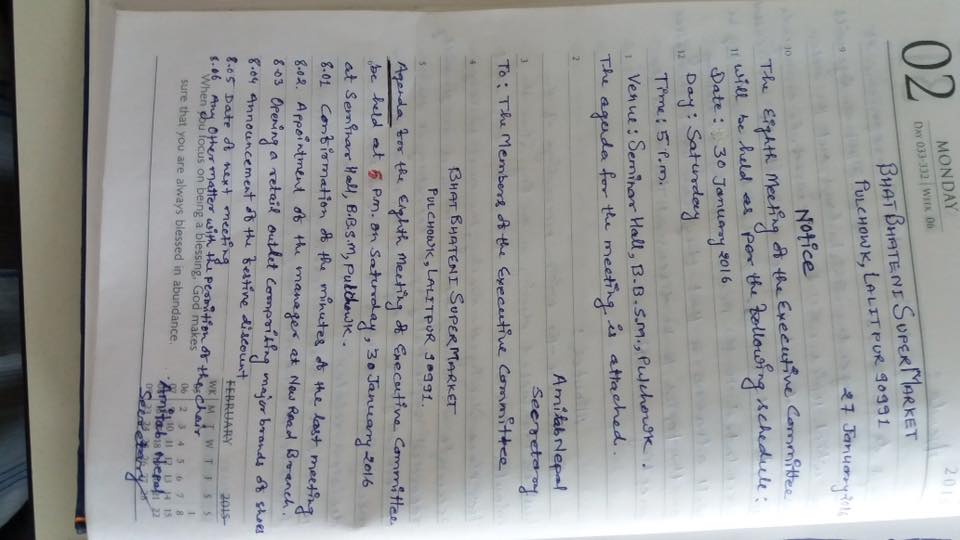 02
MONDAY
DAY 033-332 | WEEK 06
201
BHAT BHATENI SUPER MARKET
PULCHOWK, LALITPUR 90991
27 January 2016
Notice
The Eighth Meeting of the Executive Committee
will be held as per the following schedule:
Date: 30 January 2016
Day: Saturday
Time: 5 P.m.
Venue: Seminar Hall, B.B.S.M., Pulchowk.
The agenda for the meeting is attached.
Amitab Nepal
Secretary
To: The Members of the Executive Committee
BHAT BHATENI SUPER MARKET
PULCHOWK, LALITPUR 90991.
Agenda for the Eighth Meeting of Executive Committee
be held at 5 P.m. on Saturday, 30 January 2016
at Seminar Hall, B.B.S.M, Pulchowk.
8.01 Confirmation of the minutes of the last meeting
8.02. Appointment of the manager at New Road Branch.
8.03 Opening a retail outlet Comprising major brands of shoes
8.04 Announcement of the festive discount
8.05 Date of next meeting
8.06 Any Other matter with the permition of the Chair
Amitab Nepal
Secretary
When you focus on being a blessing, God makes
sure that you are always blessed in abundance.
FEBRUARY 2015
WK M T W T F S S